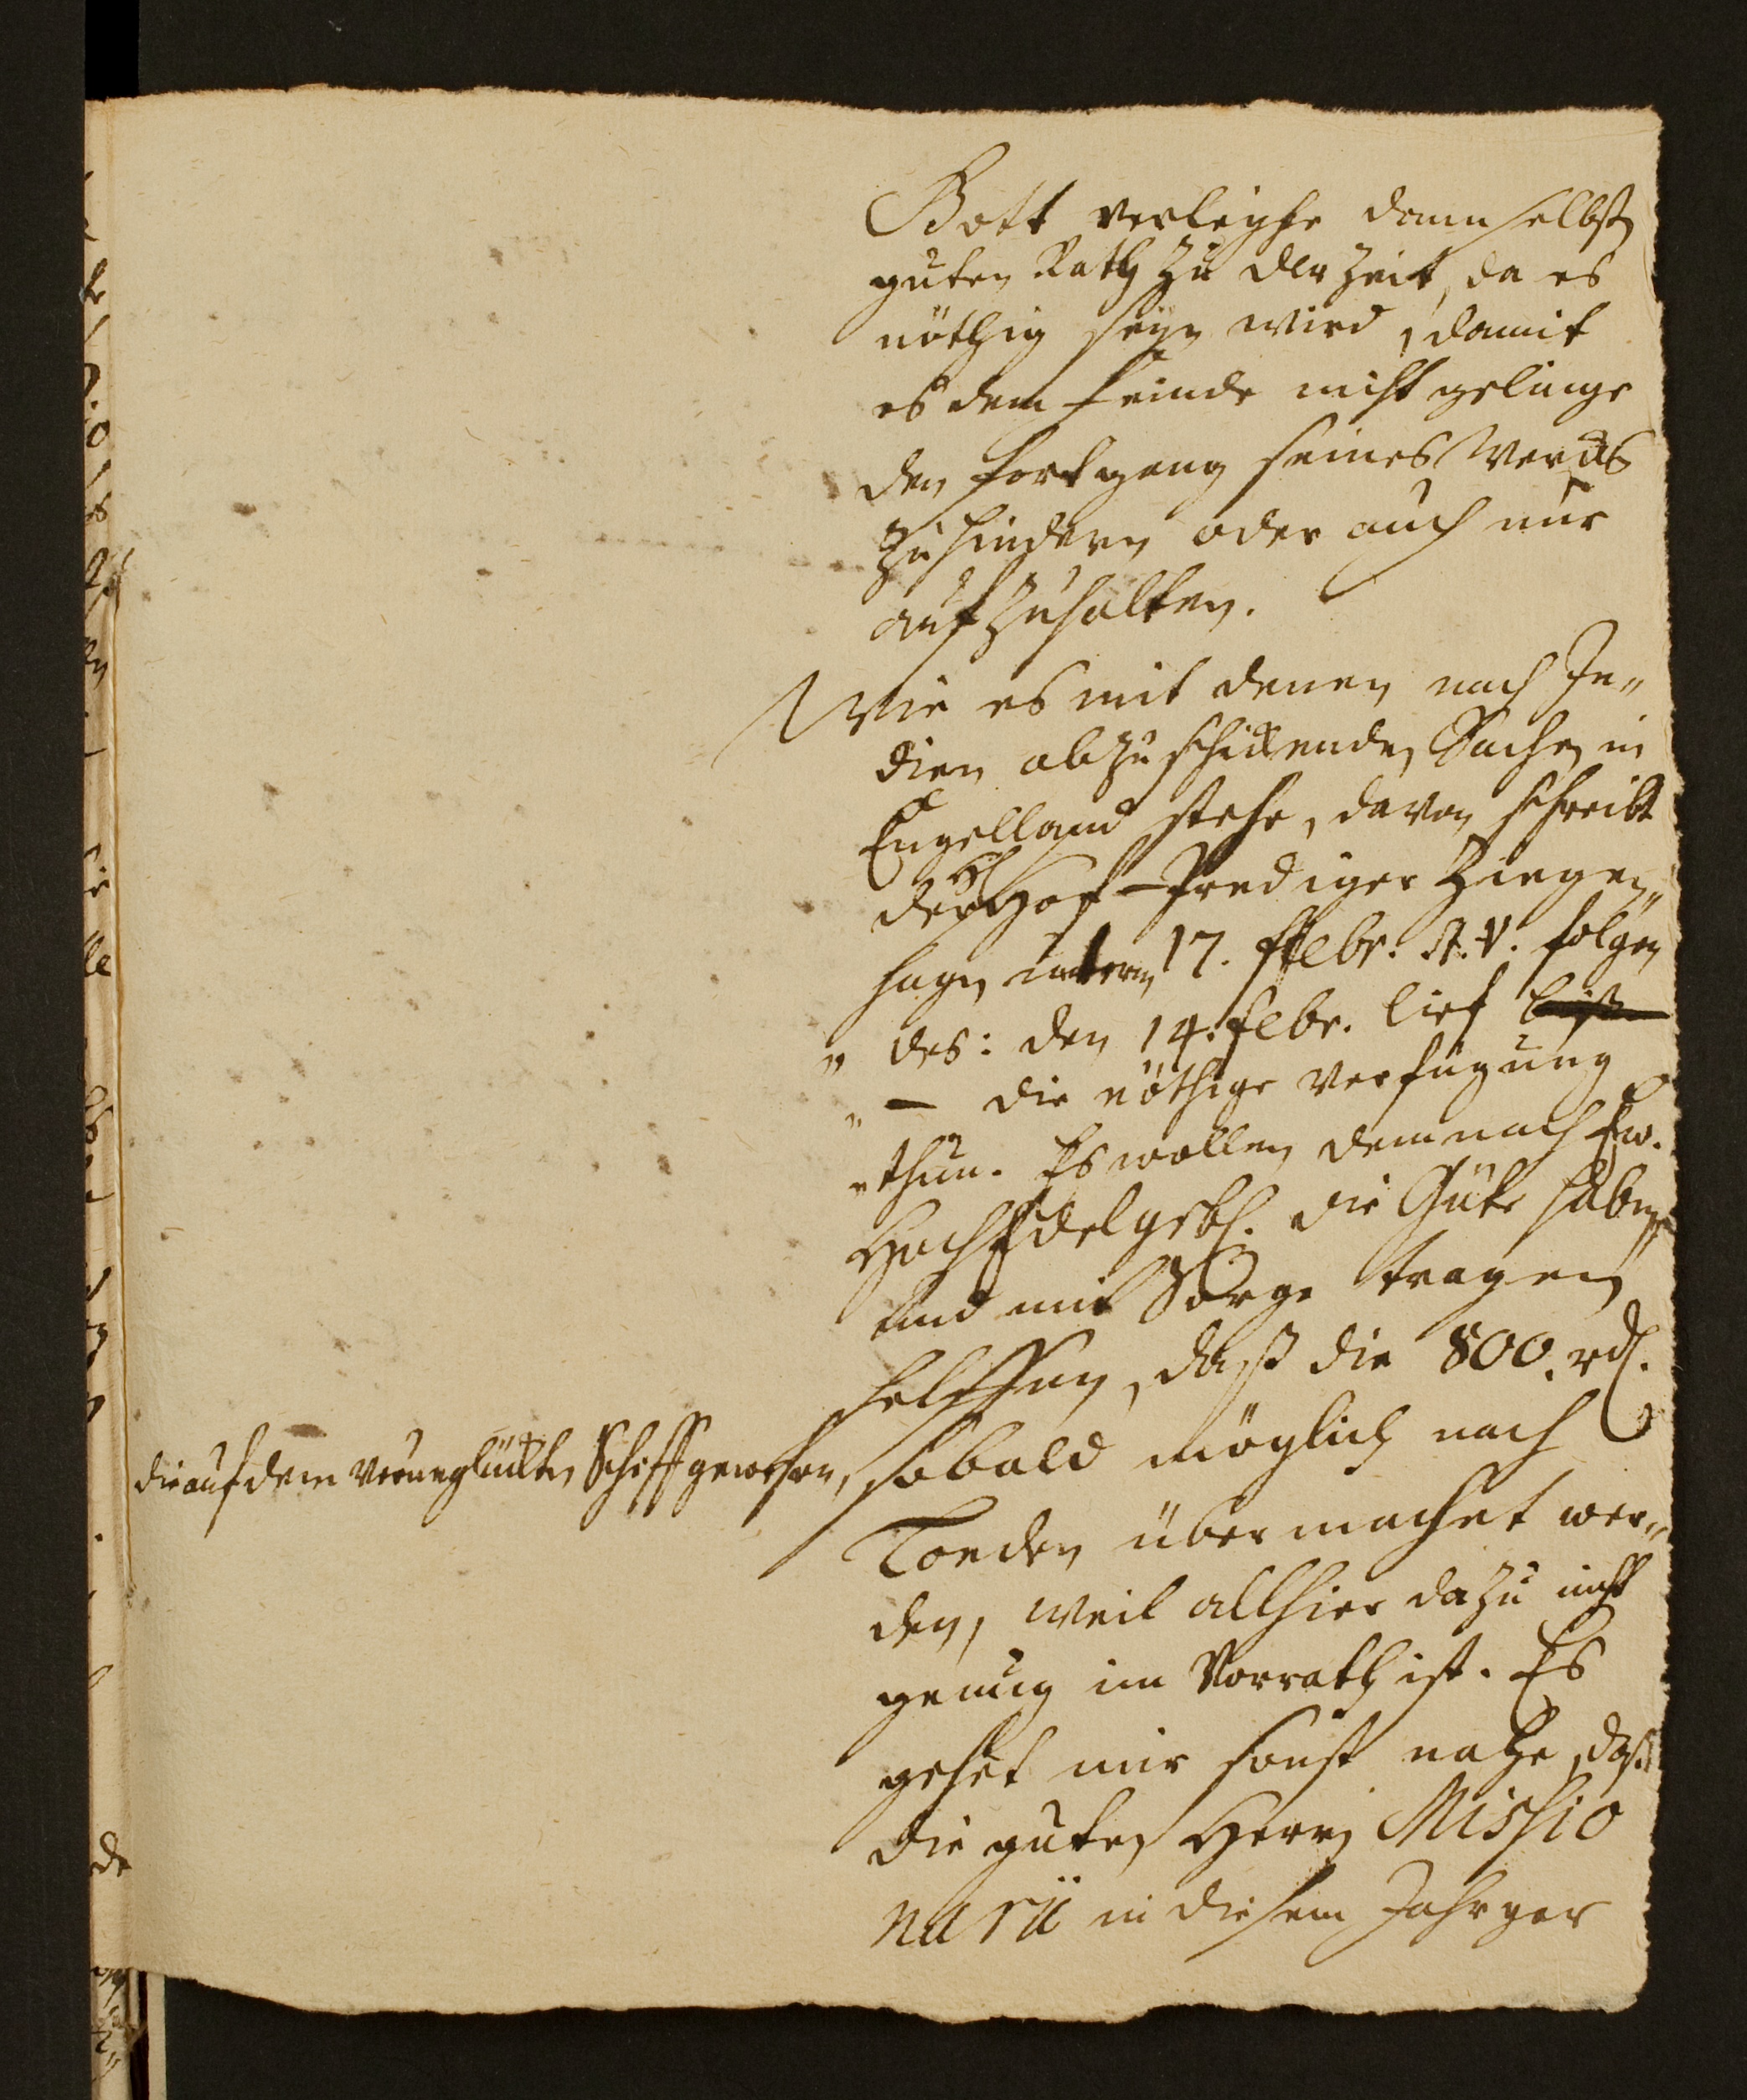 Gott verleyhe dann selbst
guten Rath zu der Zeit, da es
nöthig seyn wird, damit
es dem Feinde nicht gelinge
den Fortgang seines Wercks
zu hindern oder auch nur
aufzuhalten.
Wie es mit denen nach In„
dien abzuschickenden Sachen in
Engelland stehe, davon schreibt
der H Hof-Prediger Ziegen„
hagen unterm 17. Febr. st. v. folgen
„ des: den 14. Febr. lief
„ — die nöthige Verfügung
„ thun. Es wollen demnach Ew.
HochEdelgebl. die Güte haben
und mit Sorge tragen
helffen, daß die 800. rdl.
die auf dem verunglückten Schiff gewesen, sobald möglich nach
Londen übermachet wer„
den, weil allhier dazu nicht
genug im Vorrath ist. Es
gehet mir sonst nahe, daß
die guten Herrn Missio
narii in diesem Jahr gar